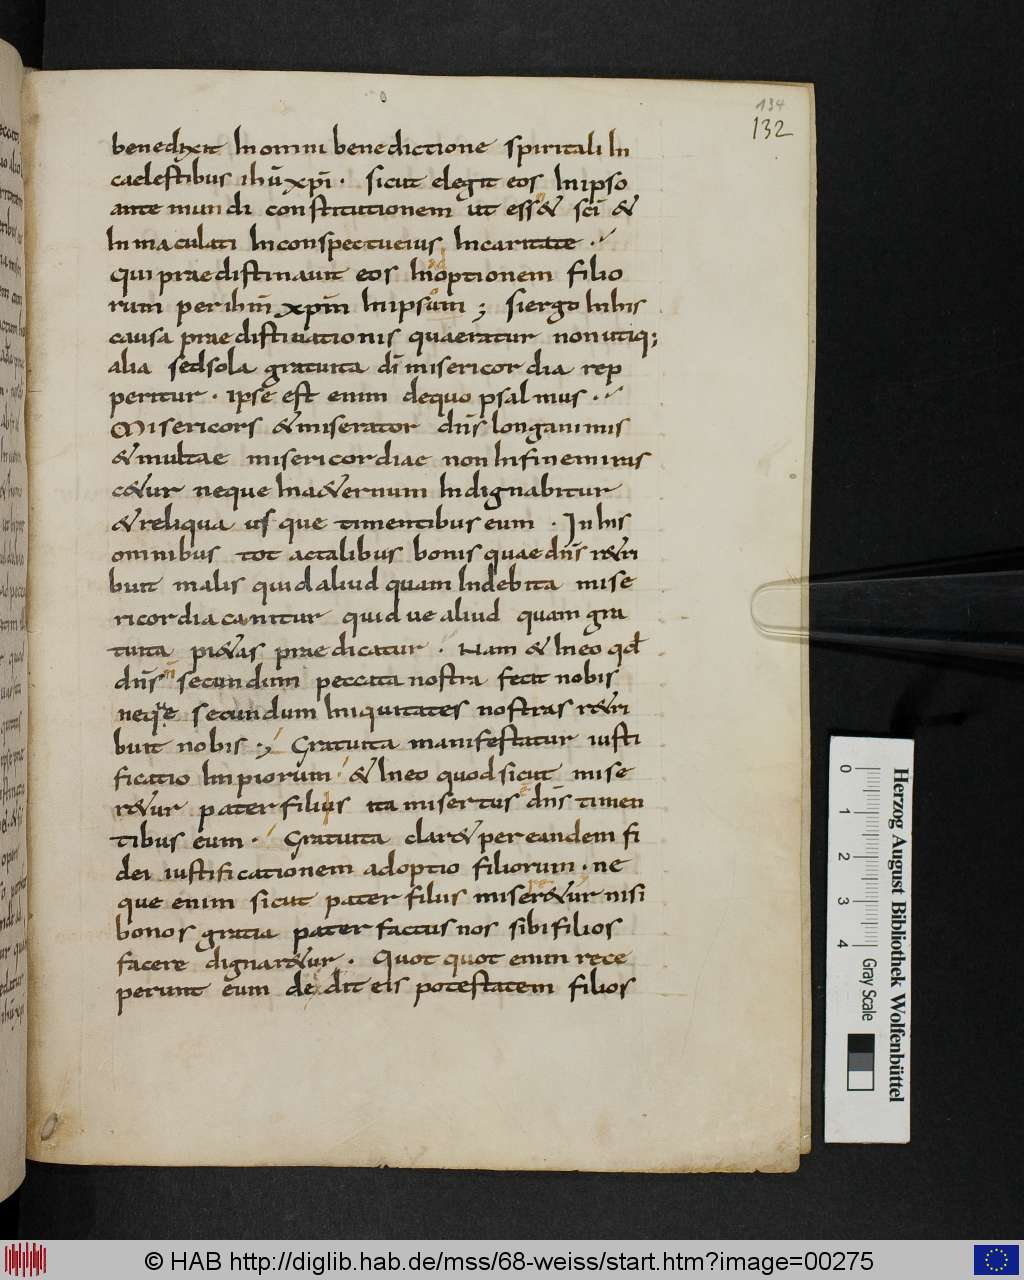 134
132
benedixit In omni benedictione spiritali In
caelestibus ihū xp̄i · sicut elegit eos In ipso
ante mundi constitutionem ut ess& sc̄i &
Inmaculati In conspectu eius In caritate ·
Qui praedistinavit eos In optionem filio
rum per ihm̄ xpm̄ In ipsum ; si ergo In his
causa praedistinationis quaeratur non utiq;
alia sed sola gratuita dī misericordia rep
peritur · ipse est enim de quo psalmus ·
Misericors & miserator dn̄s longanimis
& multae misericordiae non In finem iras
c&ur neque In a&ernum Indignabitur
& reliqua usque timentibus eum · In his
omnibus tot ac talibus bonis quae dn̄s r&ri
buit malis quid aliud quam Indebita mise
ricordia canitur quid ve aliud quam gra
tuita pi&as praedicatur · Nam & In eo qd̄
dn̄s n̄ secundum peccata nostra fecit nobis
neque secundum Iniquitates nostras r&ri
buit nobis · Gratuita manifestatur iusti
ficatio Impiorum · & In eo quod sicut mise
r&ur pater filius ita misertus dn̄s timen
tibus eum · Gratuita clar& per eandem fi
dei iustificationem adoptio filiorum · ne
que enim sicut pater filius miser&ur nisi
bonos gratia pater factus nos sibi filios
facere dignar&ur · Quotquot enim rece
perunt eum dedit eis potestatem filios
Herzog August Bibliothek Wolfenbüttel
0 1 2 3 4
Gray Scale
© HAB http://diglib.hab.de/mss/68-weiss/start.htm?image=00275